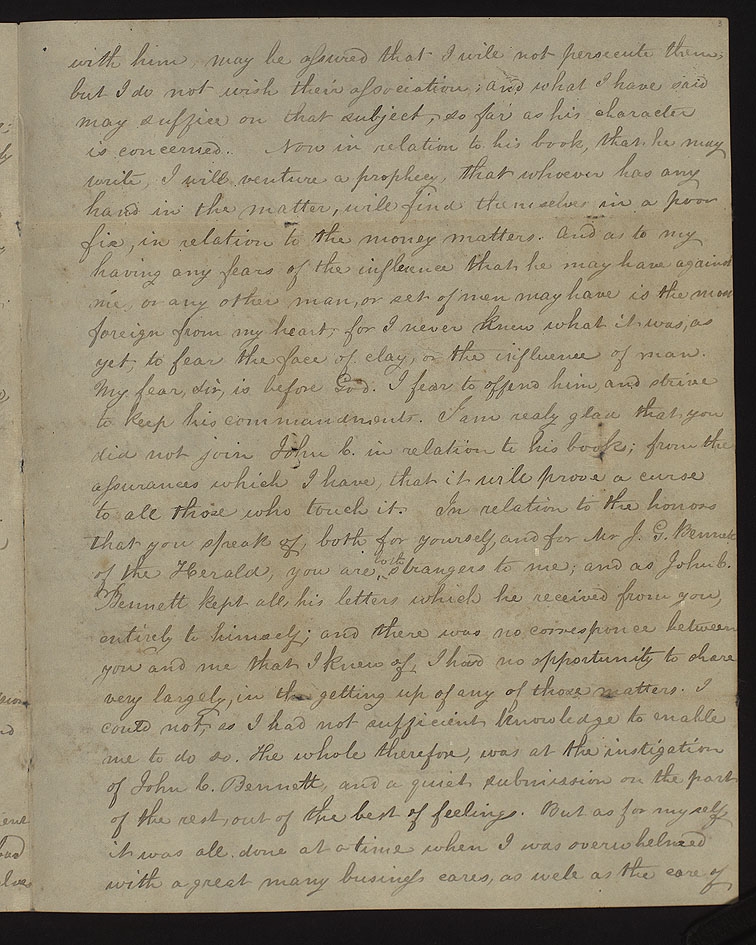 3
with him, may be assured that I will not persecute them;
but I do not wish their association; and what I have said
may suffice on that subject, so far as his character
is concerned. Now in relation to his book, that he may
write, I will venture a prophecy, that whoever has any
hand in the matter, will find themselves in a poor
fix, in relation to the money matters. And as to my
having any fears of the influence that he may have against
me, or any other man, or set of men may have is the most
foreign from my heart; for I never knew what it was, as
yet, to fear the face of clay, or the influence of man.
My fear, sir, is before God. I fear to offend him, and strive
to keep his commandments. I am realy glad that you
did not join John C. in relation to his book; from the
assurances which I have, that it will prove a curse
to all those who touch it. In relation to the honors
that you speak of, both for yourself, and for Mr J. G. Bennett
of the Herald, you are both strangers to me; and as John C.
Bennett kept all his letters which he received from you,
entirely to himself; and there was no corresponce between
you and me that I knew of, I had no opportunity to share
very largely, in the getting up of any of those matters. I
could not, as I had not sufficient knowledge to enable
me to do so. The whole therefore, was at the instigation
of John C. Bennett, and a quiet submission on the part
of the rest, out of the best of feelings. But as for myself,
it was all done at a time when I was overwhelmed
with a great many business cares, as well as the care of